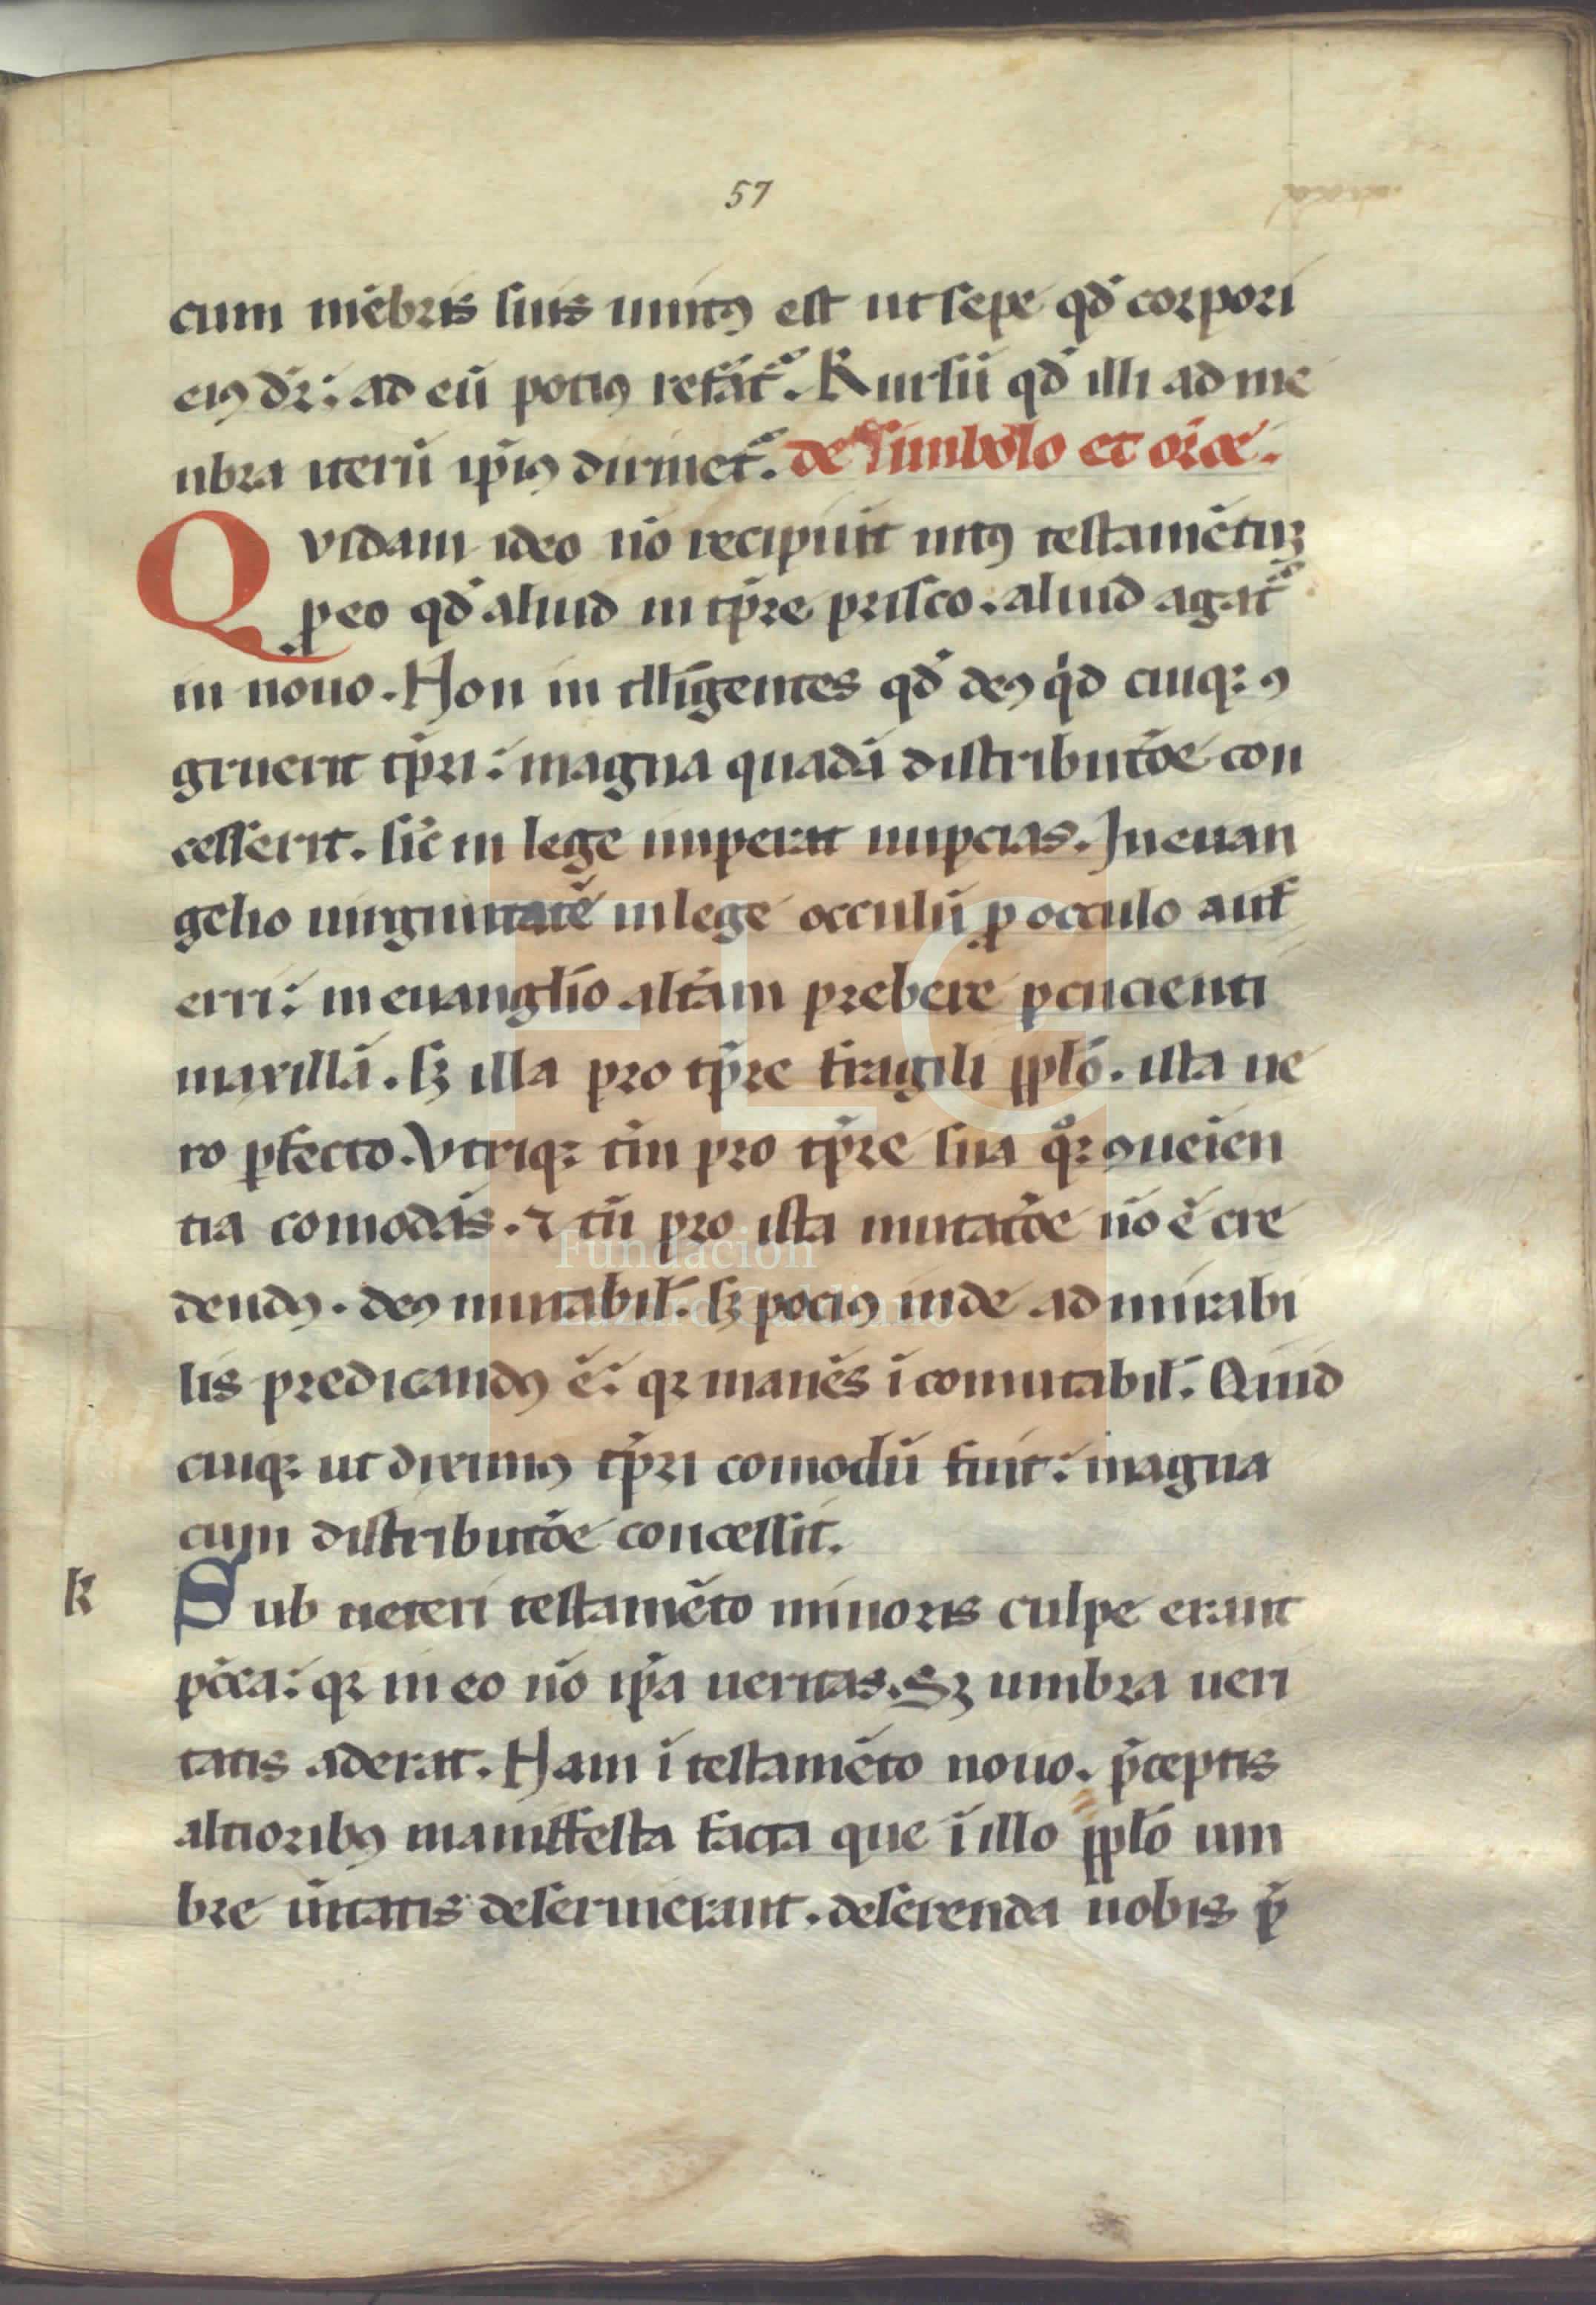 57
cum mēbris suis unitꝰ est ut sepe qđ corpori
eiꝰ dr̄: ad eū potiꝰ referat᷑. Rursū qđ illi ad me
nbra iterū ip̄iꝰ dirivet᷑. de simbolo et or̄oe.
Quidam ideo nō recipiūt uetꝰ testamētuꝫ
ꝓ eo qđ aliud in tp̄re prisco. aliud agat᷑
in nouo. Non in tellīgentes qđ deꝰ qͥd cuiqꝫ ꝯ
gruerit tp̄ri: magna quadā distributōe con
cesserit. sic̄ in lege imperat nupcias. In euan
gelio uirginitatē in lege occulū ꝓ occulo auf̄
erri: in euanglīo altām prebere percucienti
maxillā. sꝫ illa pro tp̄re fragili pp̄lō. ista ue
ro ꝑfecto. Vtriqꝫ tn̄ pro tp̄re sua qͦꝫ ꝯueien
tia comodās. ⁊ tn̄ pro ista mutatōe nō ē cre
dendꝰ. deꝰ mutabil̄. sꝫ pociꝰ inde admirabi
lis predicandꝰ ē: qꝛ manēs ī comutabil̄. Quid
cuiqꝫ ut diximꝰ tp̄ri comodū fuit: magna
cum distributōe concessit.
k Sub ueteri testamēto minoris culpe erant
pc̄ca: qꝛ in eo nō ip̄a ueritas. Sꝫ umbra ueri
tatis aderat. Nam ī testamēto nouo. p̄ceptis
altioribꝰ maniffesta facta que ī illo pp̄lō um
bre ūitatis deseruierant. deserenda nobis p̄
FLG
Fundación
Lázaro Galdiano